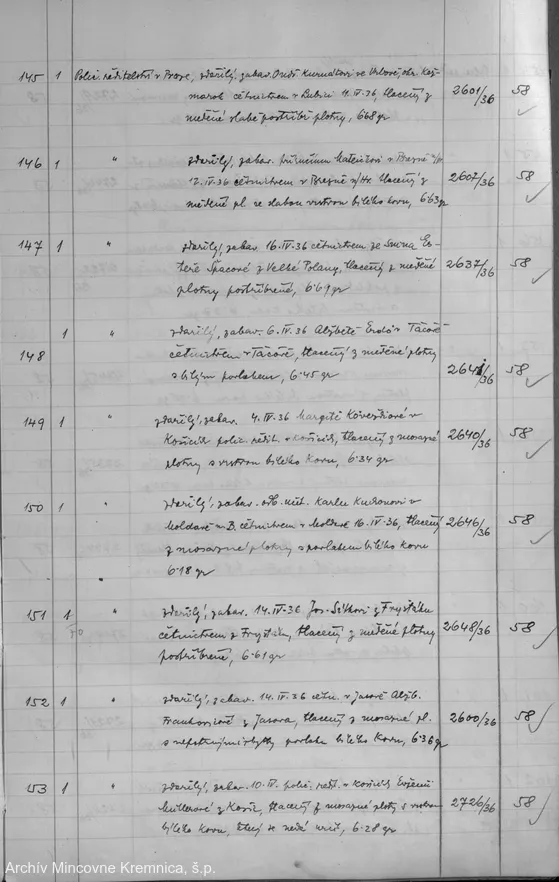 145 1 Polic. ředitelství v Praze, zdařilý, zabav. Ondř. Kurnátovi ve Vrbově, okr. Kež-
marok četnictvem v Ľubici 11.IV.36, tlačený z 2601/36 58
měděné slabě postříbř. plotny, 6·68 gr
146 1 " zdařilý, zabav. v Brezně n/Hr.
12.IV.36 četnictvem v Brezně n/Hr. tlačený z 2607/36 58
měděné pl. se slabou vrstvou bílého kovu, 6·63 gr
147 1 " zdařilý, zabav. 16.IV.36 četnictvem ze Snina Es-
teře Špacové z Velké Polany, tlačený z měděné 2637/36 58
plotny postříbřené, 6·69 gr
1 " zdařilý, zabav. 6.IV.36 Alžbetě v
148 četnictvem v tlačený z měděné plotny
s bílým povlakem, 6·45 gr /36 58
149 1 " zdařilý, zabav. 4.IV.36 Margitě v
Košicích polic. ředit. v Košicích, tlačený z mosazné 2640/36 58
plotny s vrstvou bílého kovu, 6·34 gr
150 1 " zdařilý, zabav. odb. Karlu v
Moldavě n.B. četnictvem v Moldavě 16.IV.36, tlačený 2646/36 58
z mosazné plotny s povlakem bílého kovu
6·18 gr
151 1 " zdařilý, zabav. 14.IV.36 Jos. z Fryštáku
četnictvem z Fryštáku, tlačený z měděné plotny 2648/36 58
postříbřené, 6·61 gr
152 1 " zdařilý, zabav. 14.IV.36 četn. v Jasově Alžb.
z Jasova, tlačený z mosazné pl. 2600/36 58
s nepatrnými zbytky povlaku bílého kovu, 6·36 gr
153 1 " zdařilý, zabav. 10.IV. polic. ředit. v Košicích Evženii
Müllerové z Košic, tlačený z mosazné plotny s vrstvou 2726/36 58
bílého kovu, který se nedá určit, 6·28 gr
Archív Mincovne Kremnica, š.p.